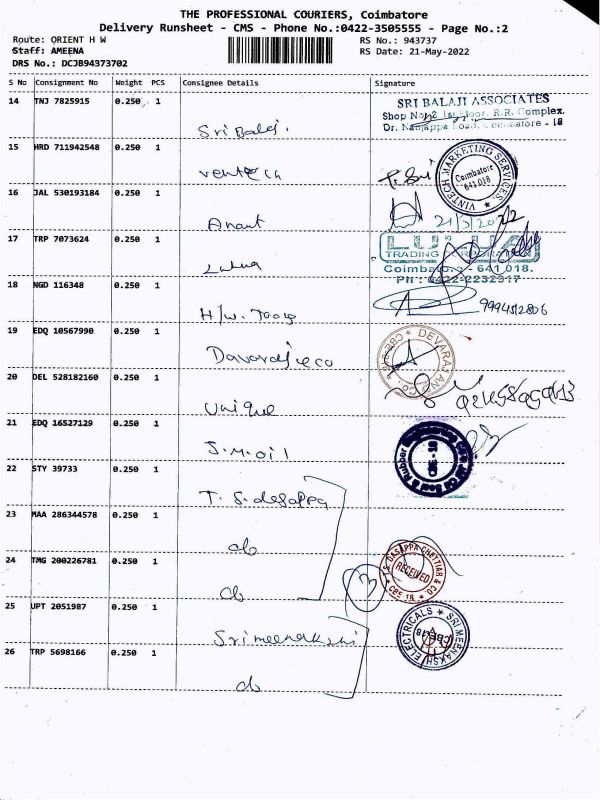 THE PROFESSIONAL COURIERS, Coimbatore
Delivery Runsheet - CMS - Phone No.:0422-3505555 - Page No.:2
Route: ORIENT H W
RS No.: 943737
Staff: AMEENA
RS Date: 21-May-2022
DRS No.: DCJB94373702
S No Consignment No Weight PCS Consignee Details Signature
14 TNJ 7825915 0.250 1
SRI BALAJI ASSOCIATES
Shop No. 2 1st Floor, R.R. Complex,
Dr. Nanjappa Road, Coimbatore - 18
Sri Balaji.
15 HRD 711942548 0.250 1
VINTECH MARKETING SERVICES.
Coimbatore
641 018.
Ventech
16 JAL 530193184 0.250 1
21/5/2022
Anant
17 TRP 7073624 0.250 1
TRADING CORPORATION
Coimbatore - 641 018.
Ph : 0422-2232917
18 NGD 116348 0.250 1
9994512806
H/w. Toois
19 EDQ 10567990 0.250 1
Devaraj & co
20 DEL 528182160 0.250 1
Unique
21 EDQ 16527129 0.250 1
J.M.oil
22 STY 39733 0.250 1
T. S. desappa
23 MAA 286344578 0.250 1
do
24 TMG 200226781 0.250 1
T.S. DASAPPA CHETTIAR & CO
RECEIVED
CBE-18
do
25 UPT 2051987 0.250 1
SRI MEENAKSHI ELECTRICALS
CBE-18
Srimeenakshi
26 TRP 5698166 0.250 1
do